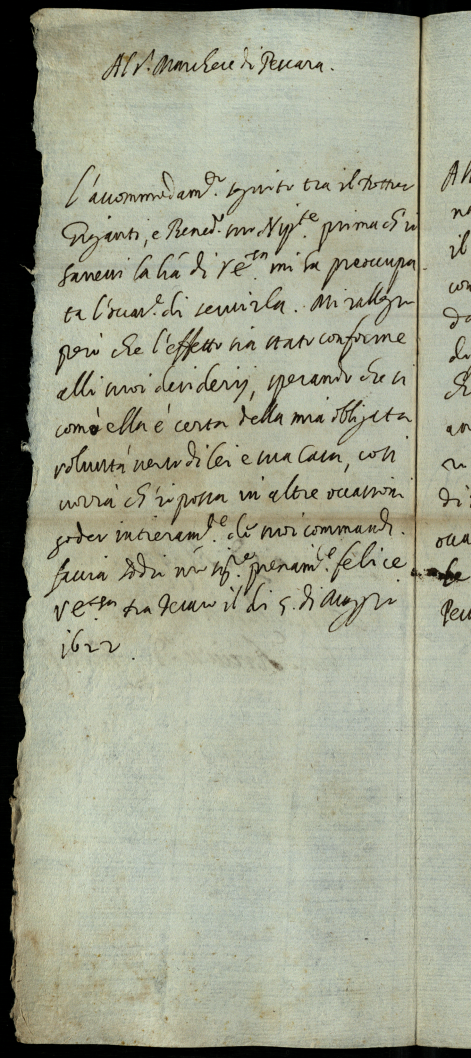 Al S.r Marchese di Pescara.
L'accommodam.to seguito tra il Dottor
e Bened.o suo Nip.te prima ch'io
havessi la l̃ra di V E mi ha preoccupa
ta l'occas.e di servirla. Mi rallegro
però che l'effetto sia stato conforme
alli suoi desiderij, sperando che si
come ella é certa della mia obligata
voluntá verso di lei e sua Casa, cosi
vorrá ch'io possa in altre occasioni
goder intieram.te de suoi commandi.
faccia Iddio n̄ro Sig.re pienam.te felice
V E il di 5. di Maggio
1622.
Al
il
con
di
ch
di
occa
Pes